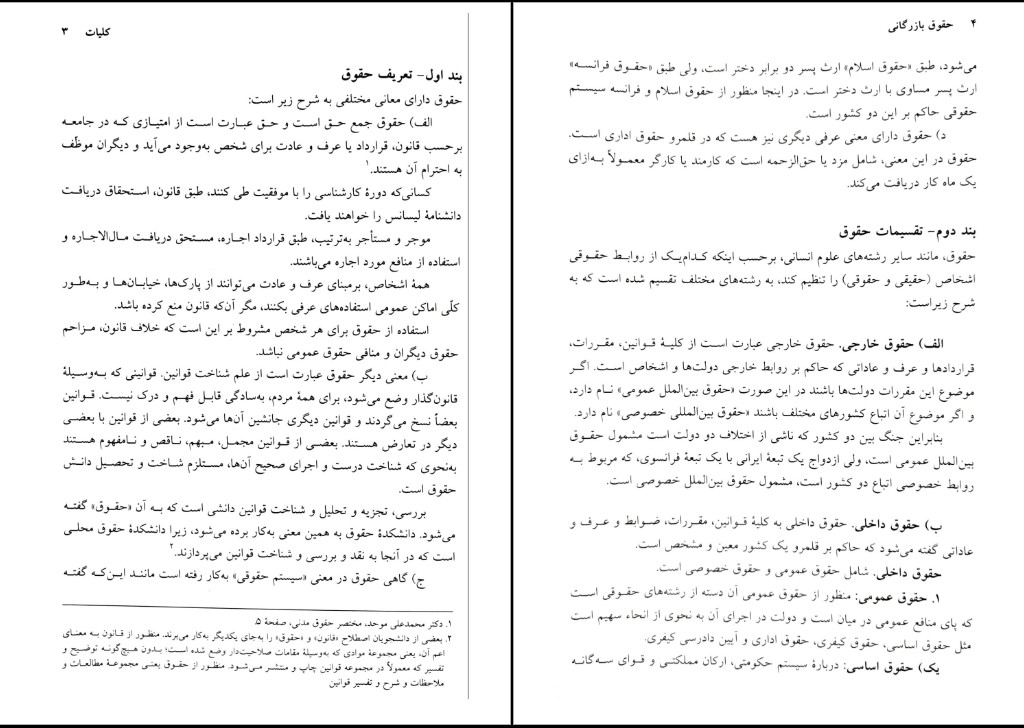 کلیات ۳
بند اول- تعریف حقوق
حقوق دارای معانی مختلفی به شرح زیر است:
الف) حقوق جمع حق است و حق عبارت است از امتیازی که در جامعه
برحسب قانون، قرارداد یا عرف و عادت برای شخص به‌وجود می‌آید و دیگران موظّف
به احترام آن هستند.۱
کسانی‌که دورهٔ کارشناسی را با موفقیت طی کنند، طبق قانون، استحقاق دریافت
دانشنامهٔ لیسانس را خواهند یافت.
موجر و مستأجر به‌ترتیب، طبق قرارداد اجاره، مستحق دریافت مال‌الاجاره و
استفاده از منافع مورد اجاره می‌باشند.
همهٔ اشخاص، برمبنای عرف و عادت می‌توانند از پارک‌ها، خیابان‌ها و به‌طور
کلّی اماکن عمومی استفاده‌های عرفی بکنند، مگر آن‌که قانون منع کرده باشد.
استفاده از حقوق برای هر شخص مشروط بر این است که خلاف قانون، مزاحم
حقوق دیگران و منافی حقوق عمومی نباشد.
ب) معنی دیگر حقوق عبارت است از علم شناخت قوانین. قوانینی که به‌وسیلهٔ
قانون‌گذار وضع می‌شود، برای همهٔ مردم، به‌سادگی قابل فهم و درک نیست. قوانین
بعضاً نسخ می‌گردند و قوانین دیگری جانشین آن‌ها می‌شود. بعضی از قوانین با بعضی
دیگر در تعارض هستند. بعضی از قوانین مجمل، مبهم، ناقص و نامفهوم هستند
به‌نحوی که شناخت درست و اجرای صحیح آن‌ها، مستلزم شناخت و تحصیل دانش
حقوق است.
بررسی، تجزیه و تحلیل و شناخت قوانین دانشی است که به آن «حقوق» گفته
می‌شود. دانشکدهٔ حقوق به همین معنی به‌کار برده می‌شود، زیرا دانشکدهٔ حقوق محلی
است که در آنجا به نقد و بررسی و شناخت قوانین می‌پردازند.۲
ج) گاهی حقوق در معنی «سیستم حقوقی» به‌کار رفته است مانند این‌که گفته
۱. دکتر محمدعلی موحد، مختصر حقوق مدنی، صفحهٔ ۵.
۲. بعضی از دانشجویان اصطلاح «قانون» و «حقوق» را به‌جای یکدیگر به‌کار می‌برند. منظور از قانون به معنای
اعم آن، یعنی مجموعهٔ موادی که به‌وسیلهٔ مقامات صلاحیت‌دار وضع شده است؛ بدون هیچ‌گونه توضیح و
تفسیر که معمولاً در مجموعه قوانین چاپ و منتشر می‌شود. منظور از حقوق یعنی مجموعهٔ مطالعات و
ملاحظات و شرح و تفسیر قوانین
۴ حقوق بازرگانی
می‌شود، طبق «حقوق اسلام» ارث پسر دو برابر دختر است، ولی طبق «حقوق فرانسه»
ارث پسر مساوی با ارث دختر است. در اینجا منظور از حقوق اسلام و فرانسه سیستم
حقوقی حاکم بر این دو کشور است.
د) حقوق دارای معنی عرفی دیگری نیز هست که در قلمرو حقوق اداری است.
حقوق در این معنی، شامل مزد یا حق‌الزحمه است که کارمند یا کارگر معمولاً به‌ازای
یک ماه کار دریافت می‌کند.
بند دوم- تقسیمات حقوق
حقوق، مانند سایر رشته‌های علوم انسانی، برحسب اینکه کدام‌یک از روابط حقوقی
اشخاص (حقیقی و حقوقی) را تنظیم کند، به رشته‌های مختلف تقسیم شده است که به
شرح زیراست:
الف) حقوق خارجی. حقوق خارجی عبارت است از کلیهٔ قوانین، مقررات،
قراردادها و عرف و عاداتی که حاکم بر روابط خارجی دولت‌ها و اشخاص است. اگر
موضوع این مقررات دولت‌ها باشند در این صورت «حقوق بین‌الملل عمومی» نام دارد،
و اگر موضوع آن اتباع کشورهای مختلف باشند «حقوق بین‌المللی خصوصی» نام دارد.
بنابراین جنگ بین دو کشور که ناشی از اختلاف دو دولت است مشمول حقوق
بین‌الملل عمومی است، ولی ازدواج یک تبعهٔ ایرانی با یک تبعهٔ فرانسوی، که مربوط به
روابط خصوصی اتباع دو کشور است، مشمول حقوق بین‌الملل خصوصی است.
ب) حقوق داخلی. حقوق داخلی به کلیهٔ قوانین، مقررات، ضوابط و عرف و
عاداتی گفته می‌شود که حاکم بر قلمرو یک کشور معین و مشخص است.
حقوق داخلی. شامل حقوق عمومی و حقوق خصوصی است.
۱. حقوق عمومی: منظور از حقوق عمومی آن دسته از رشته‌های حقوقی است
که پای منافع عمومی در میان است و دولت در اجرای آن به نحوی از انحاء سهیم است
مثل حقوق اساسی، حقوق کیفری، حقوق اداری و آیین دادرسی کیفری.
یک) حقوق اساسی: دربارهٔ سیستم حکومتی، ارکان مملکتی و قوای سه‌گانه